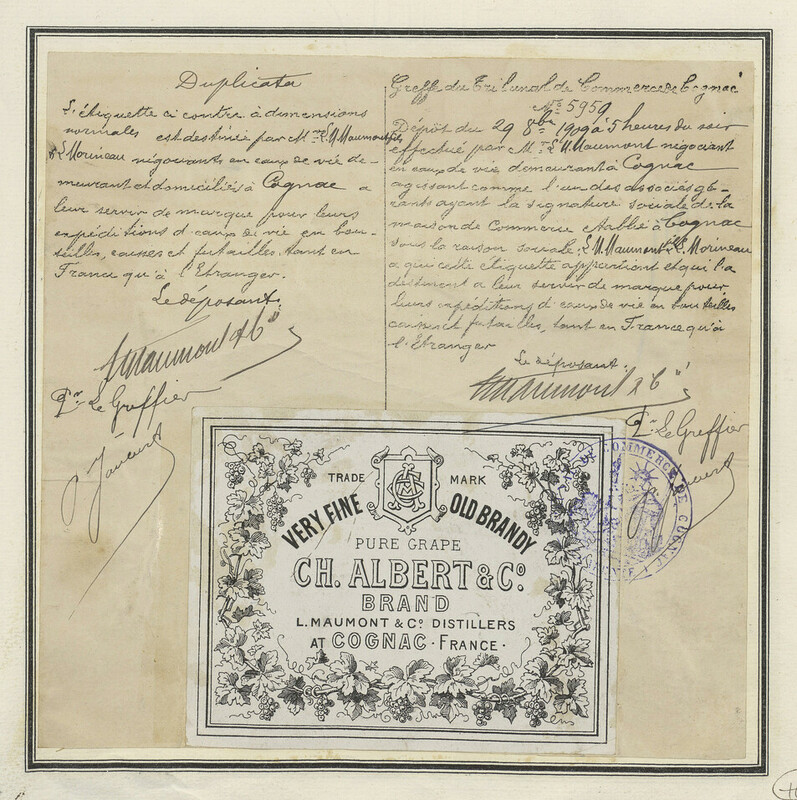 Duplicata
L'étiquette ci contre à dimensions
normales est destinée par Mrs L. U. Maumont fils
& L. Morineau négociants en eaux de vie de-
meurant et domiciliés à Cognac a
leur servir de marque pour leurs
expéditions d'eaux de vie en bou-
teilles, caisses et futailles, tant en
France qu'à l'Etranger.
Le déposant.
L. Maumont & Co
Pr Le Greffier
Greffe du Tribunal de Commerce de Cognac
No 5959
Dépôt du 29 8bre 1909 à 5 heures du soir
effectué par Mr L. U. Maumont négociant
en eaux de vie demeurant à Cognac
agissant comme l'un des associés gé-
rants ayant la signature sociale de la
maison de Commerce établie à Cognac
sous la raison sociale, L. U. Maumont fils & L. Morineau
a qui cette étiquette appartient et qui l'a
destinent a leur servir de marque pour
leurs expéditions d'eaux de vie en bouteilles
caisses et futailles, tant en France qu'à
l'Etranger
Le déposant.
L. Maumont & Co
Pr Le Greffier
TRADE MARK
VERY FINE OLD BRANDY
PURE GRAPE
CH. ALBERT & Co.
BRAND
L. MAUMONT & Co. DISTILLERS
AT COGNAC · FRANCE ·
COMMERCE DE COGNAC